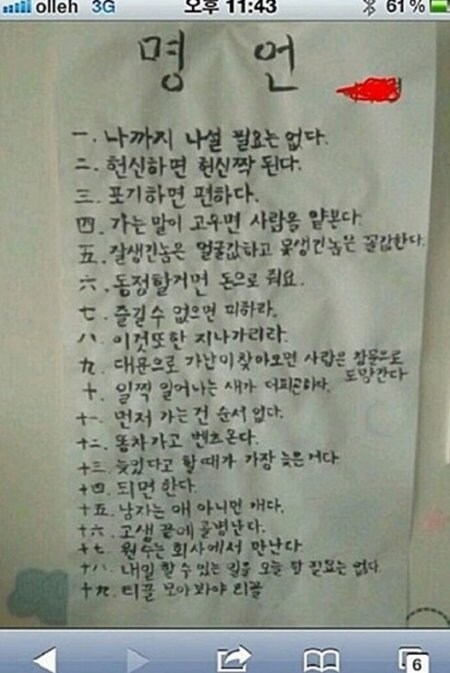 olleh 3G 오후 11:43 61%
명 언
一. 나까지 나설 필요는 없다.
二. 헌신하면 헌신짝 된다.
三. 포기하면 편하다.
四. 가는 말이 고우면 사람을 얕본다.
五. 잘생긴놈은 얼굴값하고 못생긴놈은 꼴값한다.
六. 동정할거면 돈으로 줘요.
七. 즐길수 없으면 피하라.
八. 이것또한 지나가리라.
九. 대문으로 가난이 찾아오면 사랑은 창문으로
도망간다
十. 일찍 일어나는 새가 더피곤하다.
十一. 먼저 가는건 순서 없다.
十二. 똥차가고 벤츠온다.
十三. 늦었다고 할때가 가장 늦은거다.
十四. 되면 한다.
十五. 남자는 애 아니면 개다.
十六. 고생 끝에 골병난다.
十七. 원수는 회사에서 만난다
十八. 내일 할수있는 일을 오늘 할 필요는 없다.
十九. 티끌 모아봐야 티끌
6